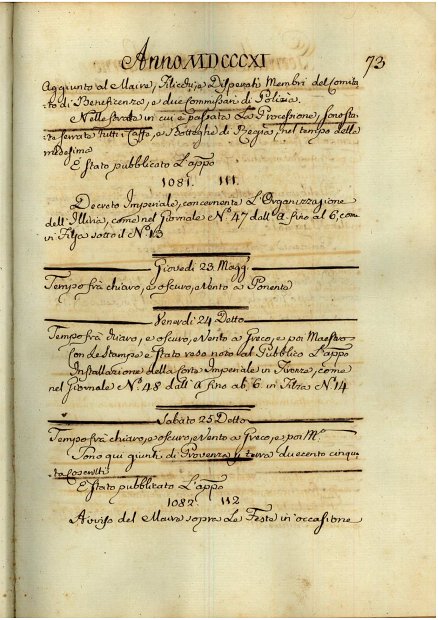 Anno MDCCCXI 73
Aggiunto al Maire, Filicchi, e Disperati Membri del Comita
to di Beneficenza, e due Commissari di Polizia.
Nelle strade in cui è passata La Processione, sono sta
te serrate tutti i Caffè, e Botteghe di Regia, nel tempo della
medesima
È stato pubblicato L'appo
1081. 111.
Decreto Imperiale, concernente L'Organizzazione
dell'Illiria, come nel Giornale N.º 47 dall' a fino al 6, come
in Filza sotto il N.º 13
Giovedi 23 Magg.
Tempo frà chiaro, e oscuro, e Vento a Ponente
Venerdi 24 Detto
Tempo frà chiaro, e oscuro, e Vento a Greco, e poi Maestro
Con le Stampe è stato reso noto al Pubblico L'appo
Installazione della Corte Imperiale in Firenze, come
nel Giornale N.º 48 dall' a fino al 6 in Filza N.º 14
Sabato 25 Detto
Tempo frà chiaro, e oscuro, e Vento a Greco, e poi M.º
Sono qui giunti di Provenza p. terra duecento cinqu
ta Coscritti
È stato pubblicato L'appo
1082. 112
Avviso del Maire sopra Le Feste in occasione